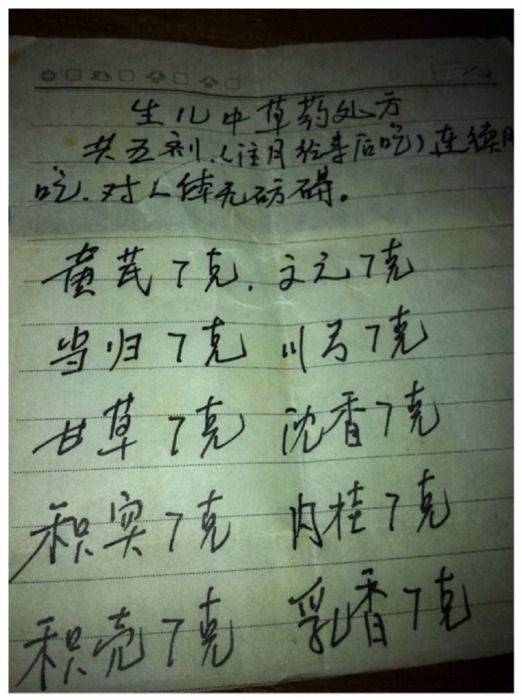 生儿中草药处方
共五剂.(注月经来后吃)连续
吃.对人体无砀碍。
黄芪7克.文元7克
当归7克 川弓7克
甘草7克 沈香7克
积实7克 肉桂7克
积壳7克 乳香7克